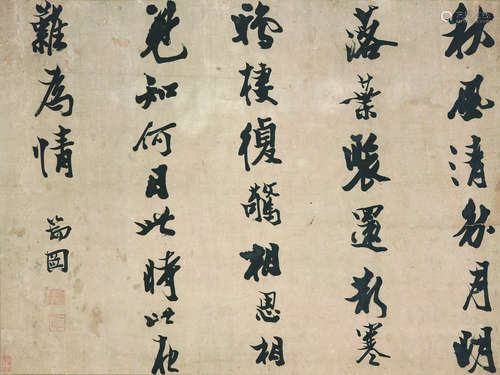 秋風清秋月明
落葉聚還散寒
鴉棲復驚相思相
見知何日此時此夜
難為情
瑞圖